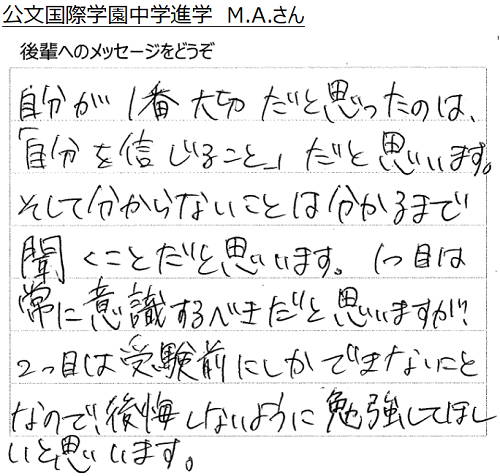 公文国際学園中学進学　M.A.さん
後輩へのメッセージをどうぞ
自分が1番大切だと思ったのは、
「自分を信じること」だと思います。
そして分からないことは分かるまで
聞くことだと思います。1つ目は
常に意識するべきだと思いますが、
2つ目は受験前にしかできないこと
なので、後悔しないように勉強してほし
いと思います。